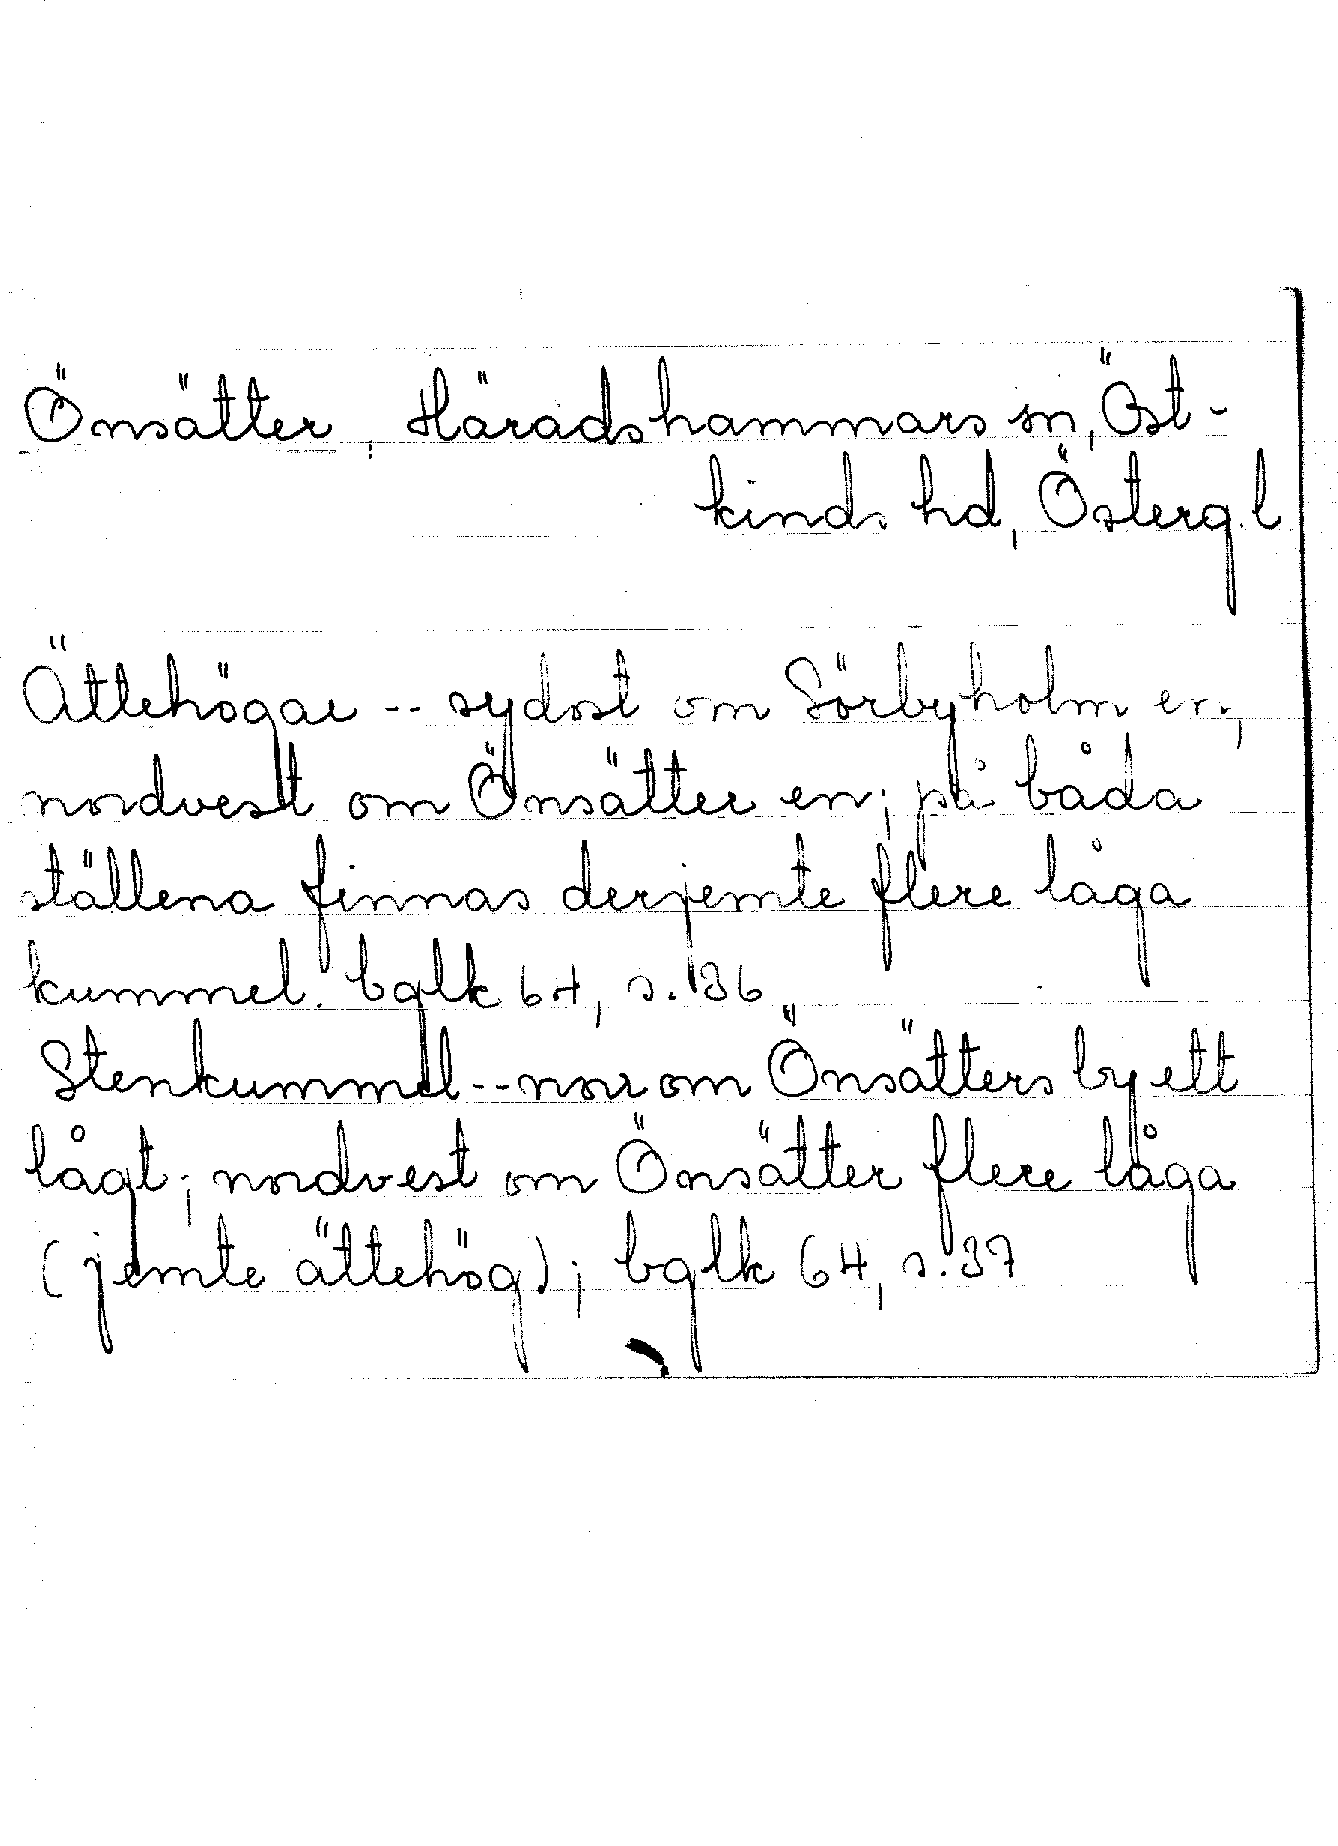 Önsätter, Häradshammars sn, Öst-
kinds hd, Österg. l
Ättehögar -- sydost om Sörbyholm en;
nordvest om Önsätter en; på båda
ställena finnas derjemte flere låga
kummel. bglk 64, s. 36
Stenkummel -- norr om Önsätters by ett
lågt; nordvest om Önsätter flere låga
(jemte ättehög); bglk 64, s. 37